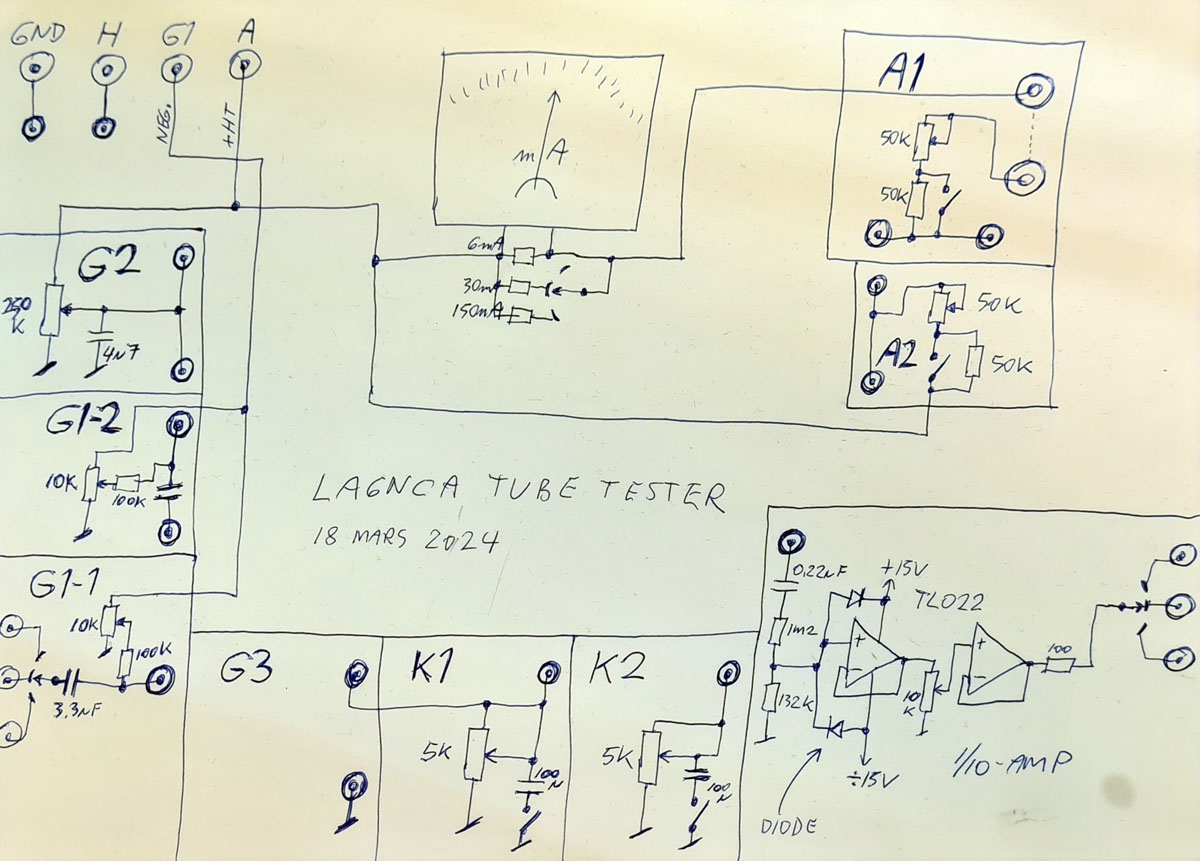 GND H G1 A
NEG.
+HT
mA
6mA
30mA
150mA
A1
50K
50K
A2
50K
50K
G2
250
K
4n7
G1-2
10K
100K
G1-1
10K
100K
3,3nF
LAGNCA TUBE TESTER
18 MARS 2024
G3
K1
5K
100
N
K2
5K
100
N
0,22uF
+15V
TL022
1m2
132K
+
-
10
K
+
-
100
÷15V
1/10-AMP
DIODE